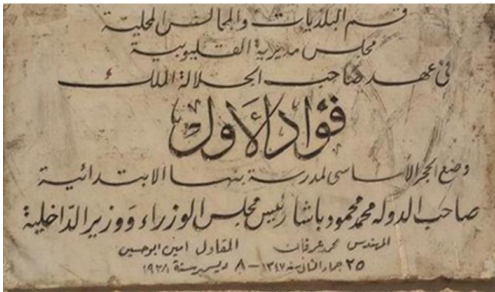 قسم البلديات والمجالس المحلية
مجلس مديرية القليوبية
فى عهد صاحب الجلالة الملك
فؤاد الأول
وضع الحجر الأساسى لمدرسة بنها الابتدائية
صاحب الدوله محمد محمود باشا رئيس مجلس الوزراء ووزير الداخلية
المهندس محمد عرفان المقاول امين ابو حسين
٢٥ جماد الثانى سنة ١٣٤٧ - ٨ ديسمبر سنة ١٩٢٨